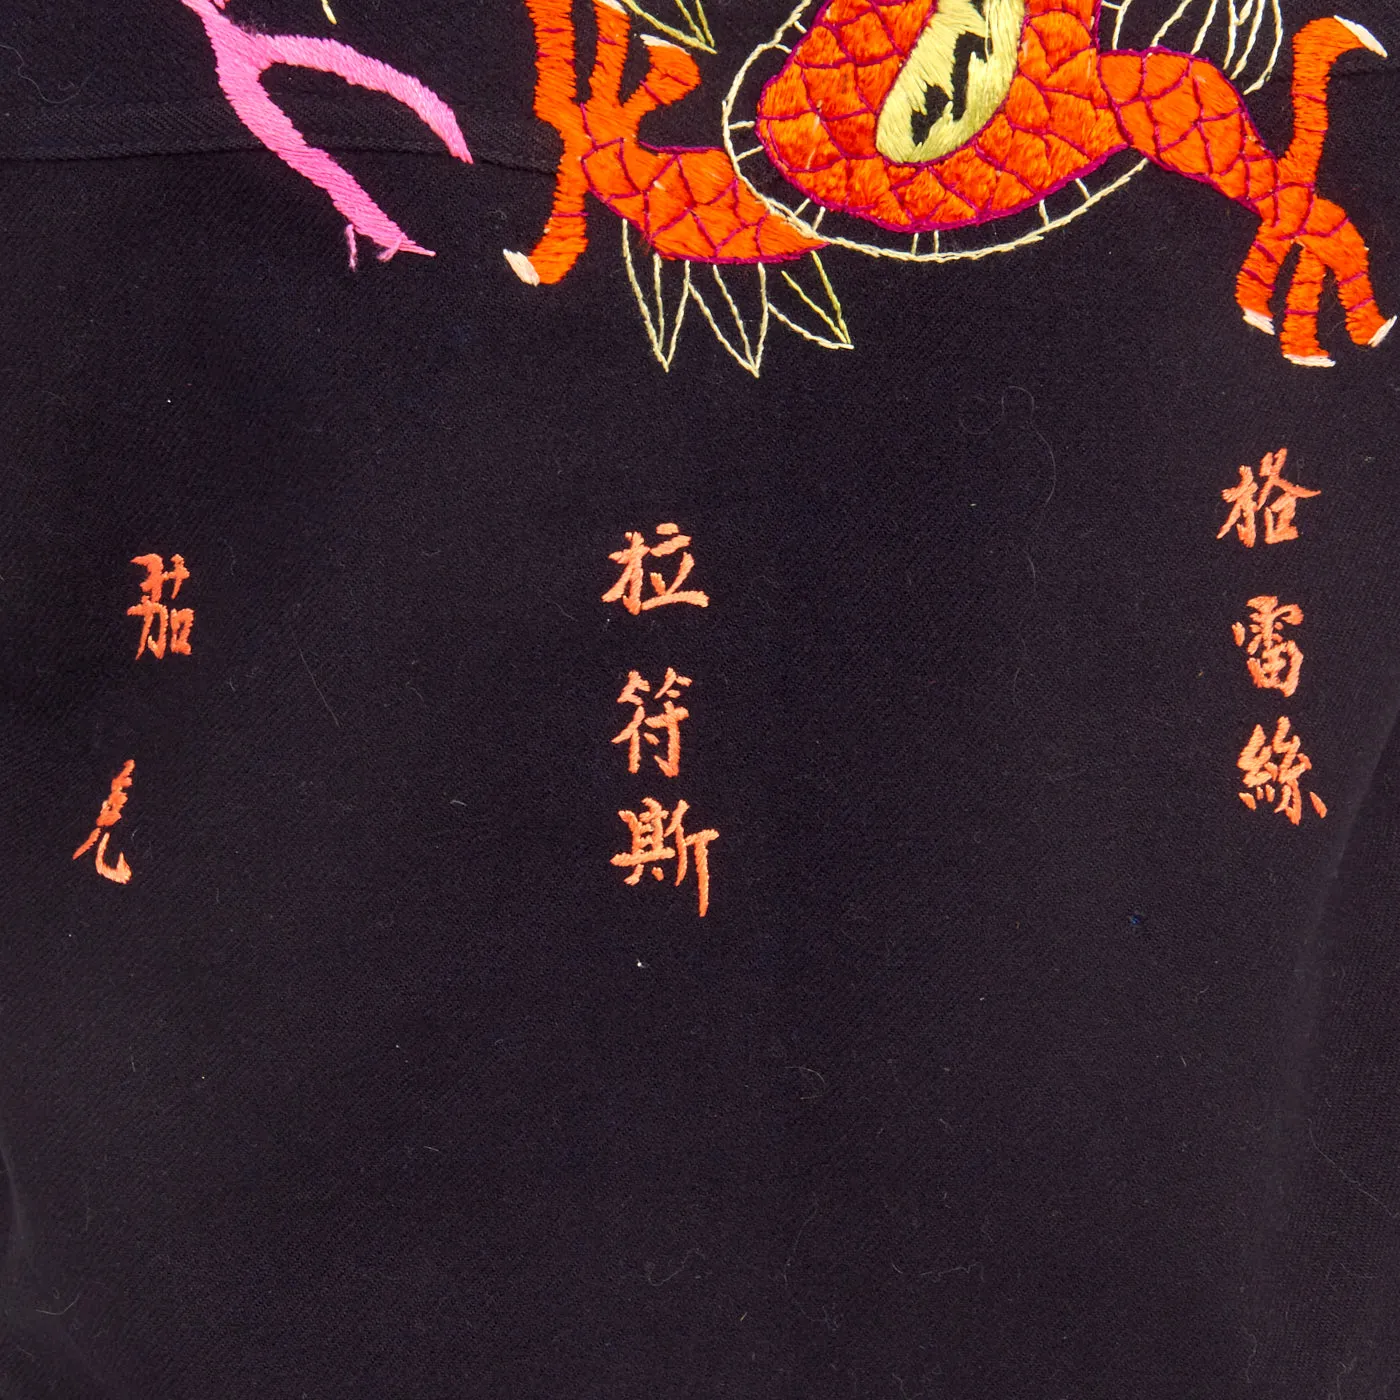 格雷絲
拉符斯
茄克